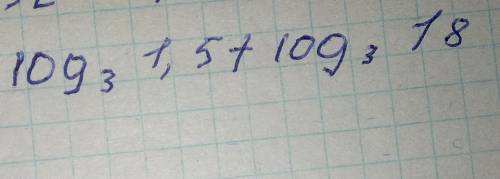 log₃ 1,5 + log₃ 18